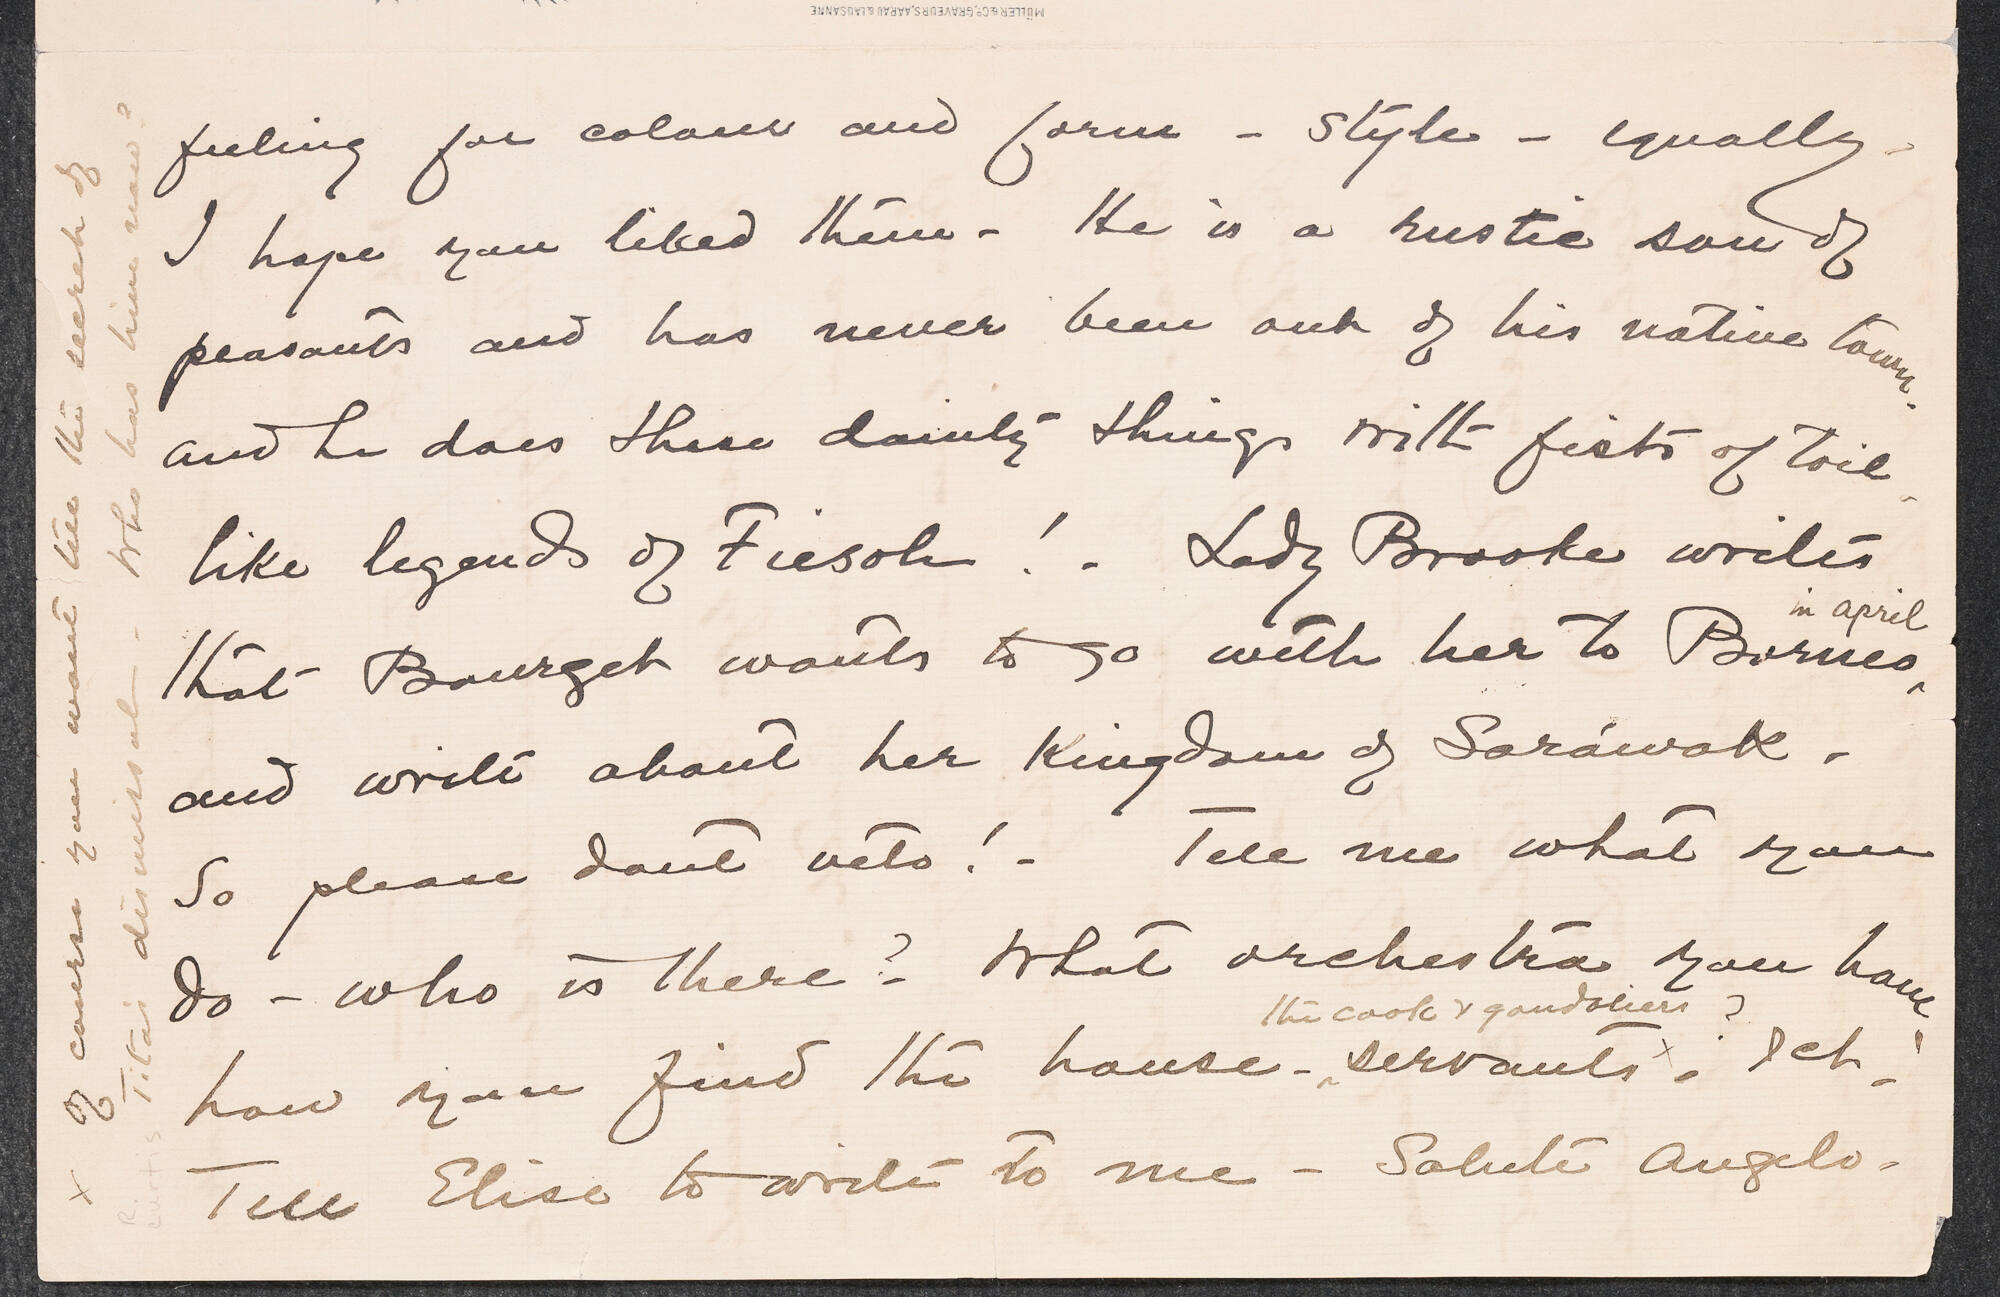 MÜLLER & Cº, GRAVEURS, AARAU & LAUSANNE
feeling for colour and form - style - equally -
I hope you liked them - He is a rustic son of
peasants and has never been out of his native town -
and he does these dainty things with fists of toil -
like legends of Fiesole ! - Lady Brooke writes
in april
that Bourget wants to go with her to Borneo ^
and write about her Kingdom of Saráwak -
So please dont veto ! - Tell me what you
do - who is there ? - What orchestra you have !
the cook & gondoliers ?
how you find the house - ^ servants x - &ct -
Tell Elise to write to me - Salute Angelo -
x Of course you want tell the secret of
Tita's dismissal - Who has him now ?
R. Curtis